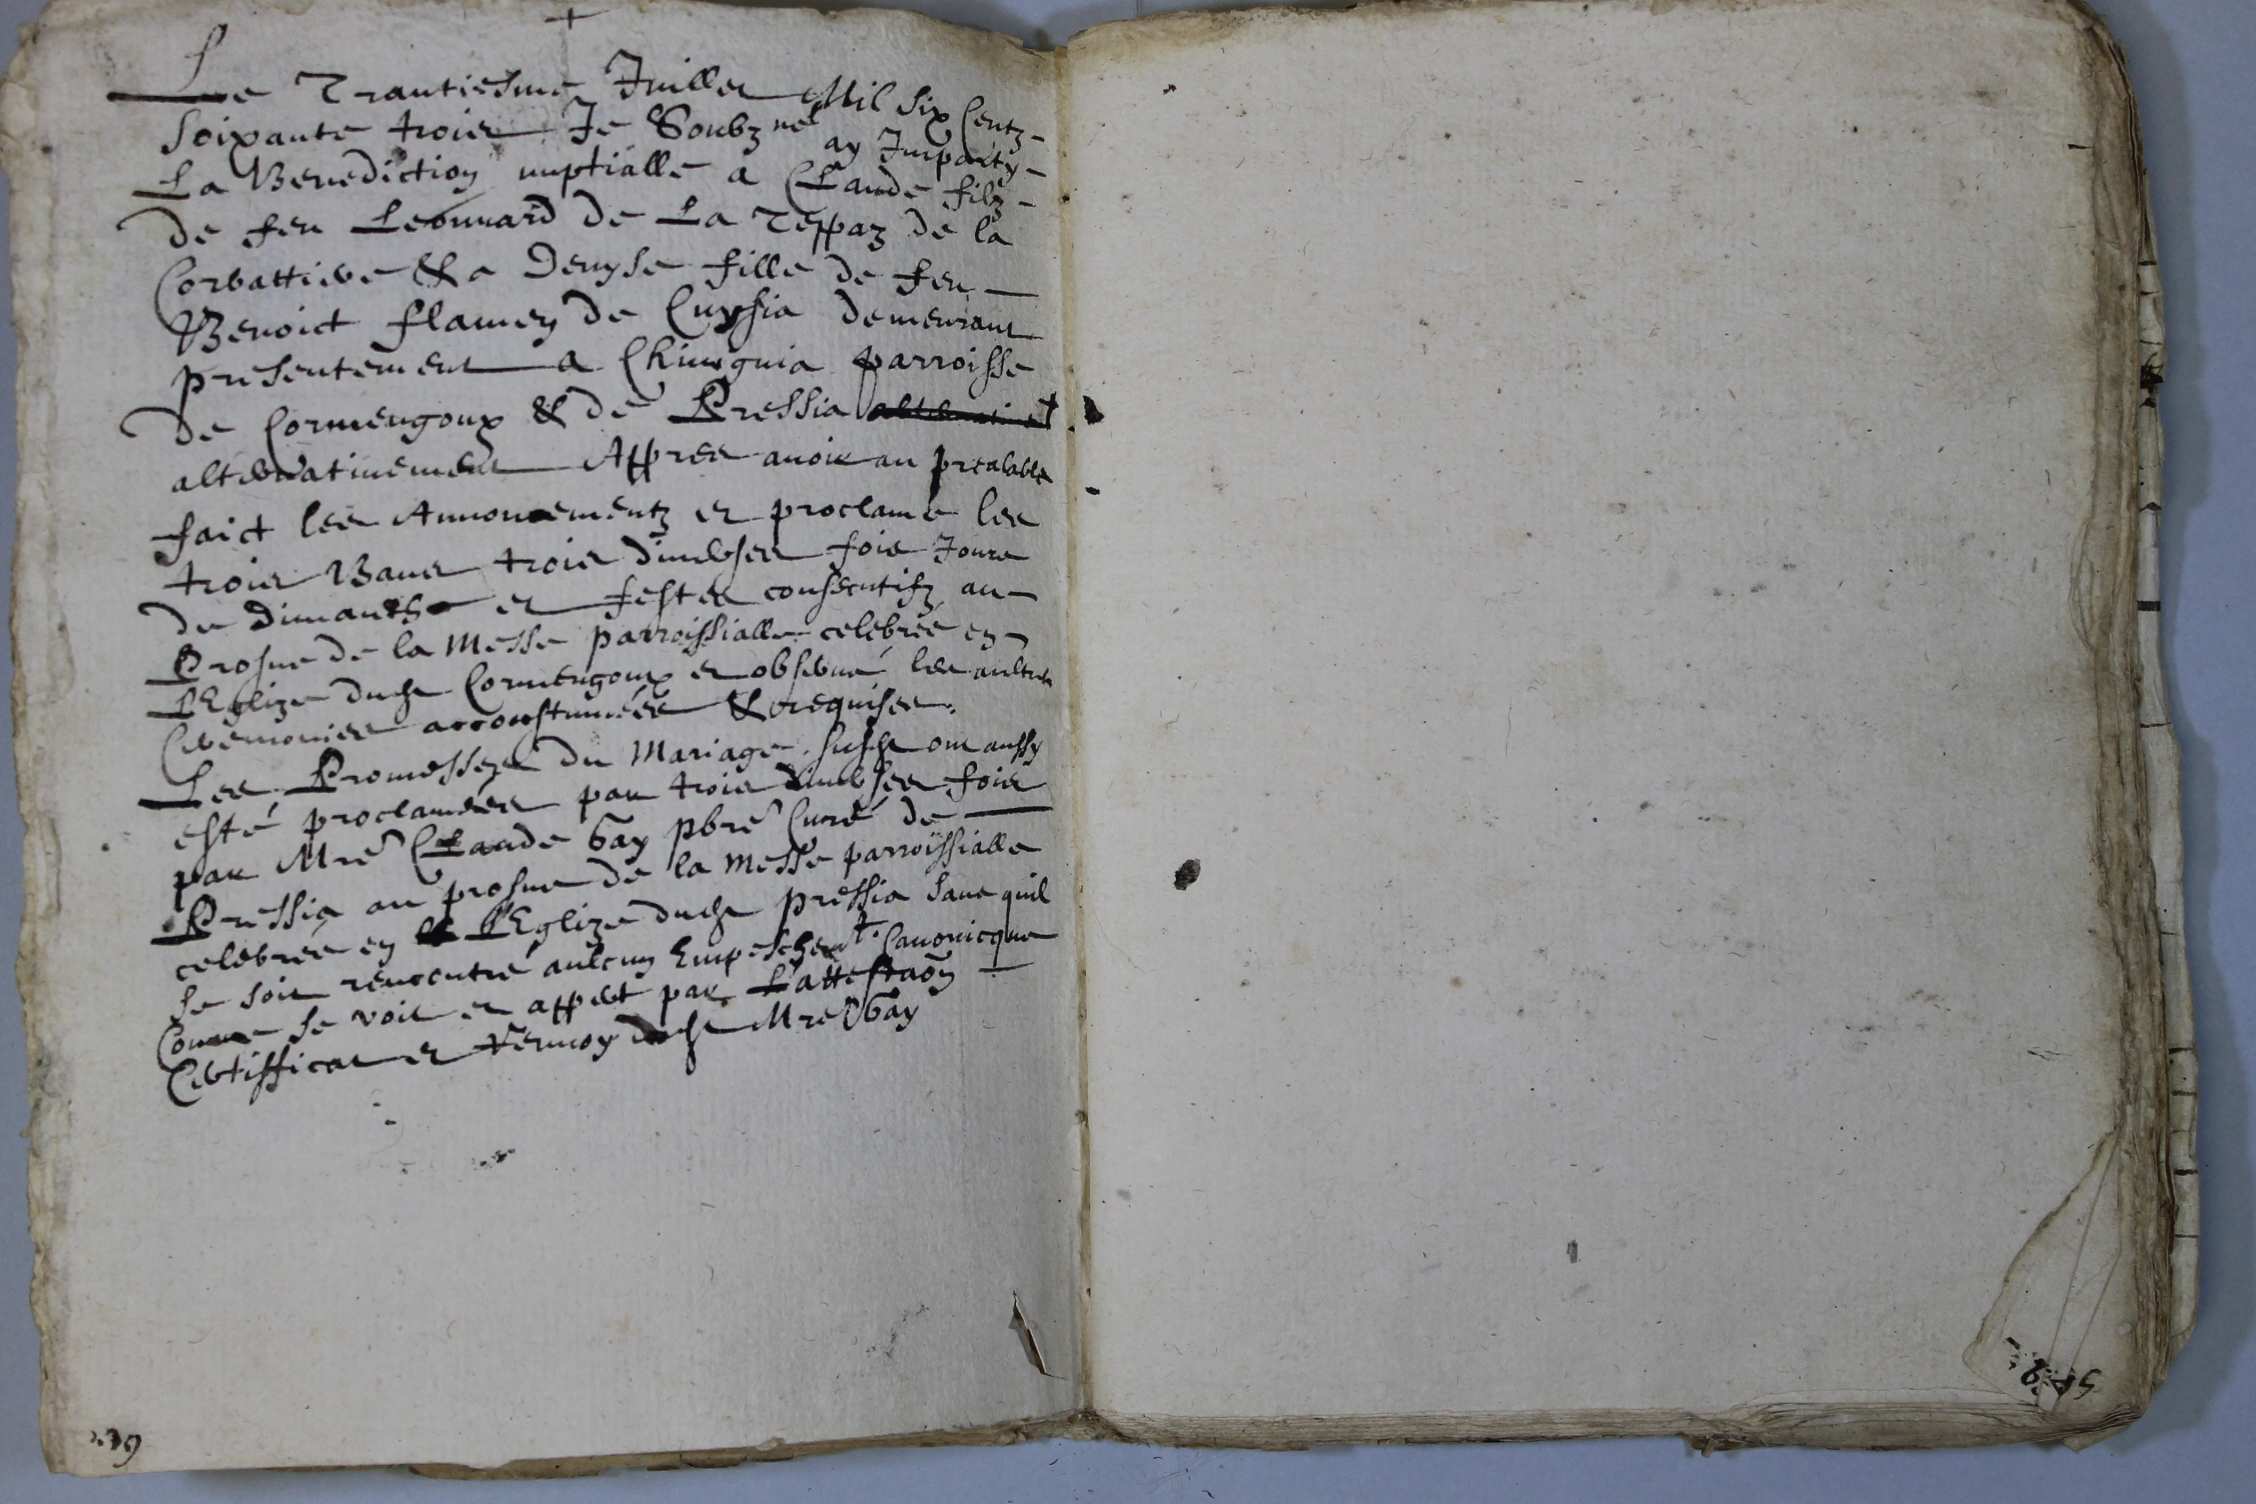 Le Trantiesme Juillet Mil Six Centz
Soixante trois Je Soubzné ay Imparty
La Benediction nuptialle a Claude filz
de feu Leonnard de La Teppaz de la
Corbattiere & a Denyse fille de feu
Benoict flamen de Cuysia demeurant
presentement a Chiwgnia parroisse
de Cormengoux & de Pressia
alternativement Appres avoir au prealable
faict les Annoncementz et proclamé les
trois Bans trois diverses fois Jours
de dimanche et festes consecutifz au
Prosne de la Messe parroissialle celebrée en
l'Eglize dudt Cormengoux et observé les aultres
Ceremonies accoustumées & requises.
Les Promesses du Mariage susdt ont aussy
esté proclamées par trois diverses fois
par Mre Claude Gay pbre Curé de
Pressia au prosne de la Messe parroissialle
celebrée en l'Eglize dudt pressia sans quil
se soit rencontré aulcun Empeschemt. Canonicque
Comme se voit et appert par L'attestaõn
Certifficat et Renvoy dudt Mre Gay